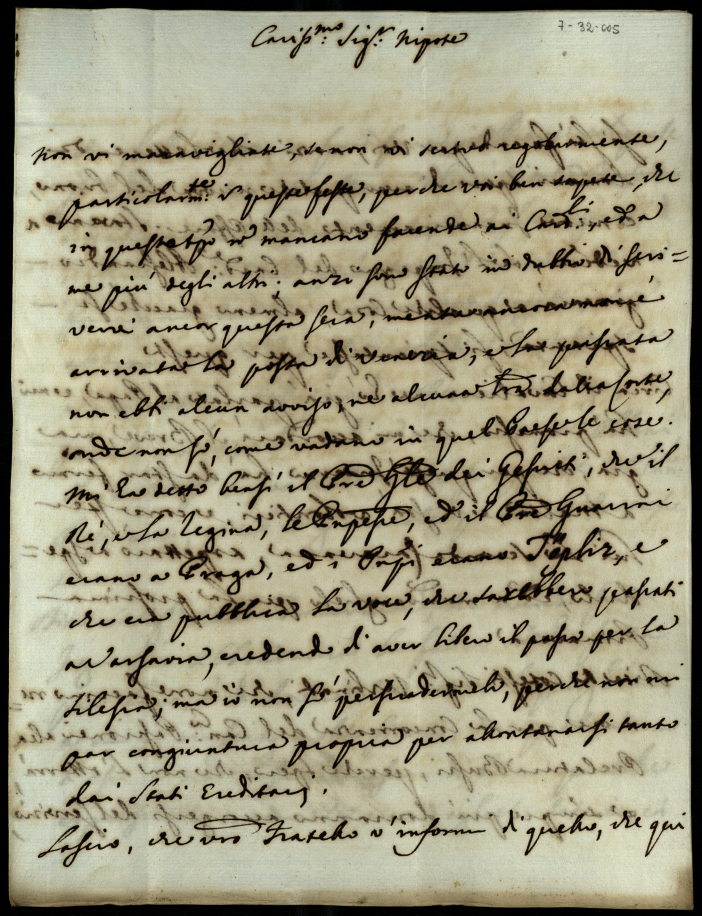 7-32-005
Cariss.mo Sig.r Nipote
Non vi maravigliate, se non vi scrivo regolarmente,
particolarm.te in queste feste, perche voi ben sapete, che
in questo tpo nō mancano facende ai Card.li, ed a
me più degli altri; anzi son stato in dubbio di scri=
vervi ancor questa sera, mentre ancora non è
arrivata la posta di Venezia; e la passata
non ebbi alcun avviso, ne alcuna lra dalla Corte,
onde non sò, come vadano in quel Paese le cose.
Mi ha detto bensì il Pre Gle dei Gesuiti, che il
Rè, e la Regina, le Ppesse, ed il Pre Guarini
erano a Praga, ed i Ppi erano a Tepliz, e
che era pubblica la voce, che sarebbero passati
a Varsavia, credendo di aver libero il passo per la
Silesia; ma io non sò persuadermelo, perche non mi
par congiuntura propria per allontanarsi tanto
dai Stati Ereditarj.
Lascio, che vro Fratello v'informi di quello, che qui